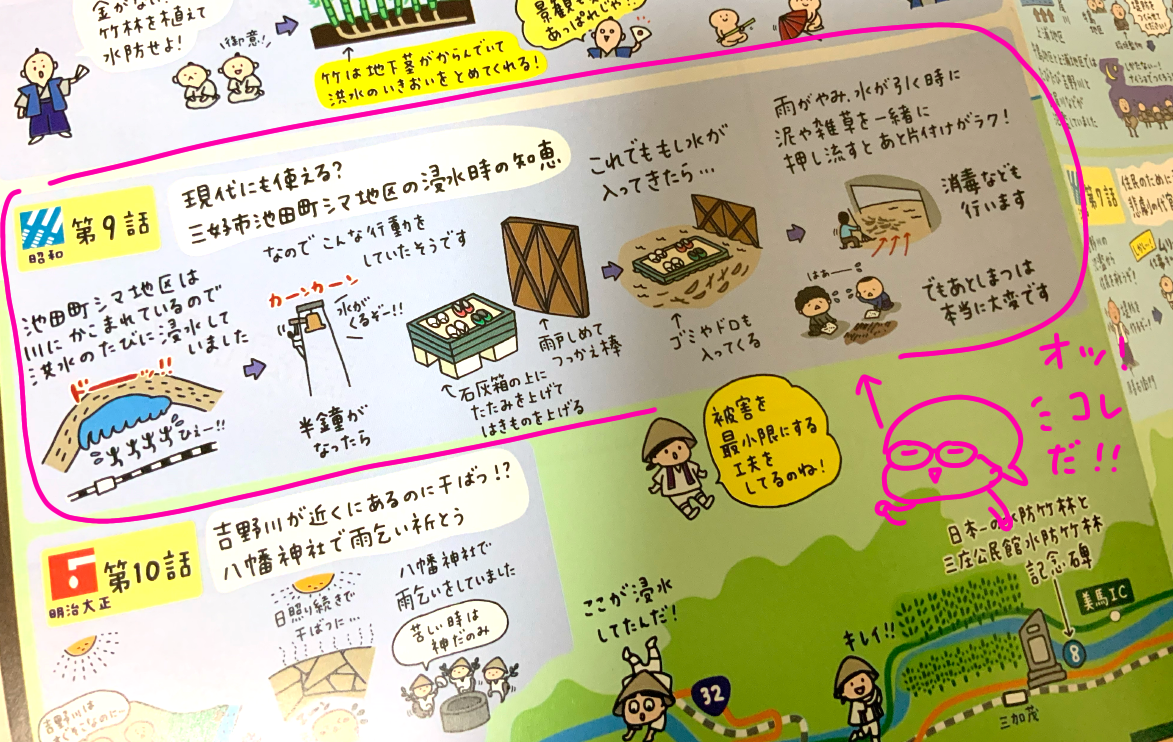 金がない
竹林を植えて
水防せよ!
御意!
竹は地下茎がからんでいて
洪水のいきおいをとめてくれる!
景観も
あっぱれじゃ!!
昭和
第9話
現代にも使える?
三好市池田町シマ地区の浸水時の知恵
池田町シマ地区は
川にかこまれているので
洪水のたびに浸水して
いました
ド
!!
ひえー!!
なのでこんな行動を
していたそうです
カーンカーン
水が
くるぞー!!
半鐘が
なったら
石灰箱の上に
たたみを上げて
はきものを上げる
雨戸しめて
つっかえ棒
これでももし水が
入ってきたら…
ゴミやドロも
入ってくる
雨がやみ、水が引く時に
泥や雑草を一緒に
押し流すとあと片付けがラク!
消毒なども
行います
はぁー
でもあとしまつは
本当に大変です
オッ!
ココレ
だ!!
被害を
最小限にする
工夫を
してるのね!
明治大正
第10話
吉野川が近くにあるのに干ばつ!?
八幡神社で雨乞い祈とう
日照り続きで
干ばつに…
八幡神社で
雨乞いをしていました
苦しい時は
神だのみ
吉野川は
すぐそこなのにー
ここが浸水
してたんだ!
32
キレイ!!
日本一の水防竹林と
三庄公民館水防竹林
記念碑
美馬IC
8
三加茂
第7話
住民のために
悲劇の代官